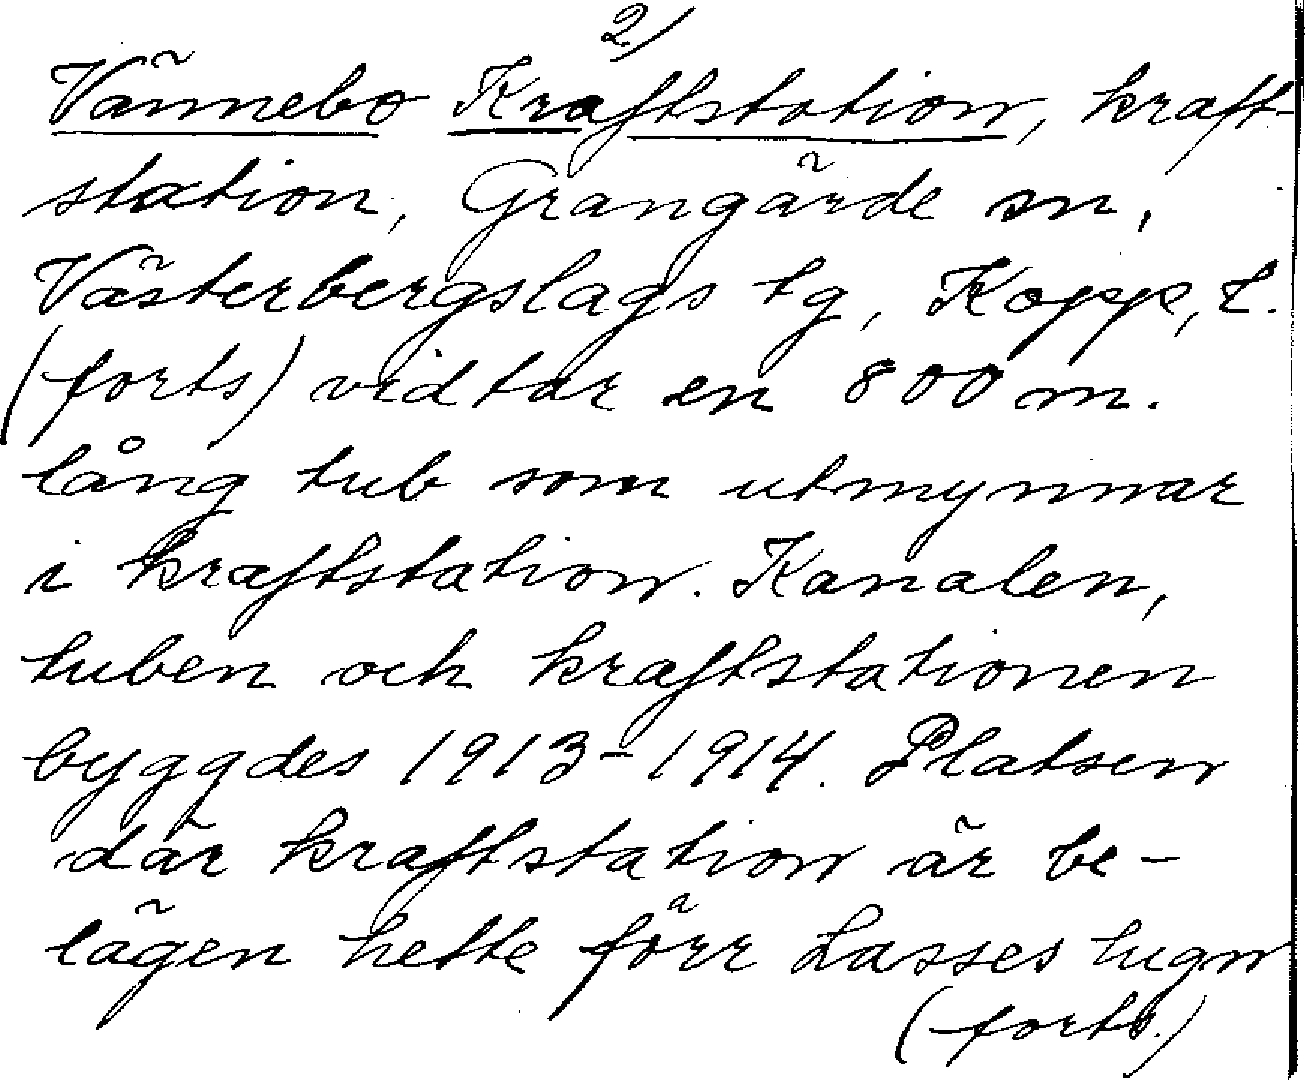 2/
Vännebo Kraftstation, kraft-
station, Grangärde sn,
Västerbergslags tg, Kopp, l.
(forts) vidtar en 800 m.
lång tub som utmynnar
i kraftstation. Kanalen,
tuben och kraftstationen
byggdes 1913-1914. Platsen
där kraftstation är be-
lägen hette förr Lasses lugn
(forts.)